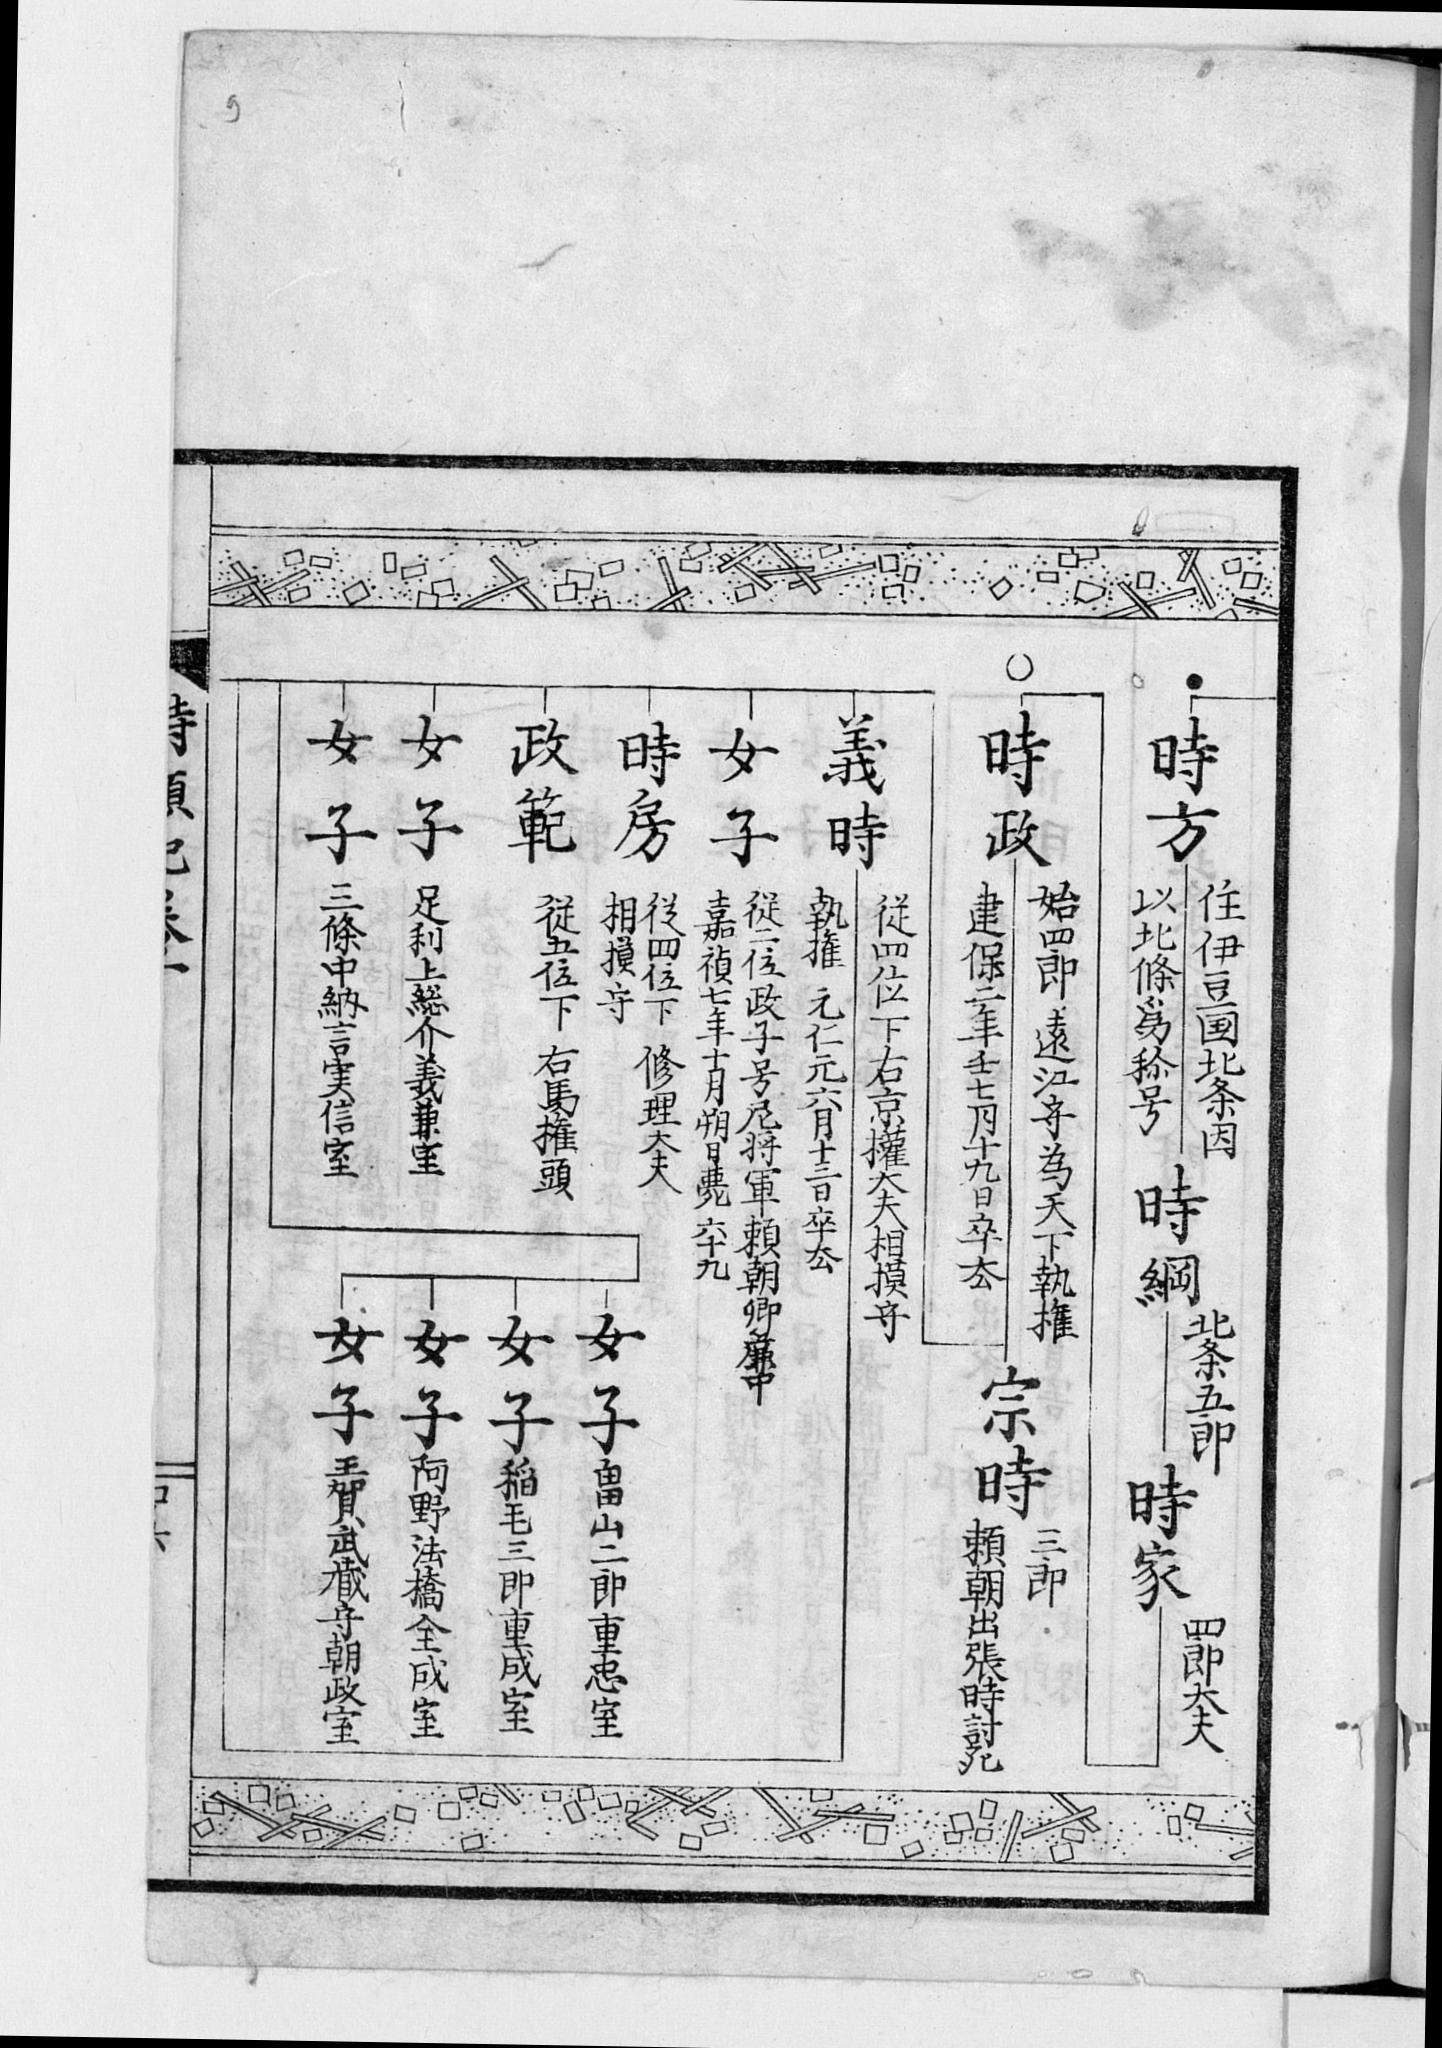 時方
住伊豆国北条因
以北條爲称号
時綱
北条五郎
時家
四郎大夫
時政
始四郎 遠江守為天下執権
建保二年壬七月十九日卒
宗時
三郎
頼朝出張時討死
義時
従四位下右京權大夫相摸守
執権 元仁元六月十三日卒
女子
従二位政子号尼将軍頼朝卿簾中
嘉禎七年十月朔日薨 六十九
時房
従四位下 修理大夫
相摸守
政範
従五位下 右馬権頭
女子
足利上総介義兼室
女子
三條中納言実信室
女子
畠山二郎重忠室
女子
稲毛三郎重成室
女子
阿野法橋全成室
女子
賀武蔵守朝政室
時頼記巻一